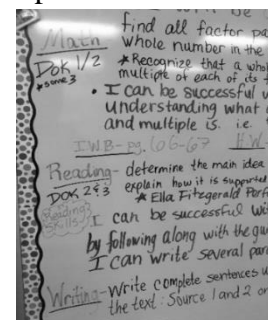 find all factor pa
Math whole number in the
DOK 1/2 *Recognize that a who
*some 3 multiple of each of its
• I can be successful w
understanding what
and multiple is. i.e.
IWB-pg. 66-67 HW-
Reading- determine the main idea
DOK 2&3 explain how it is supported
* Ella Fitzgerald
Reading Skills I can be successful wi
by following along with the gu
I can write several par
Writing-Write complete sentences u
the text: Source 1 and 2 or